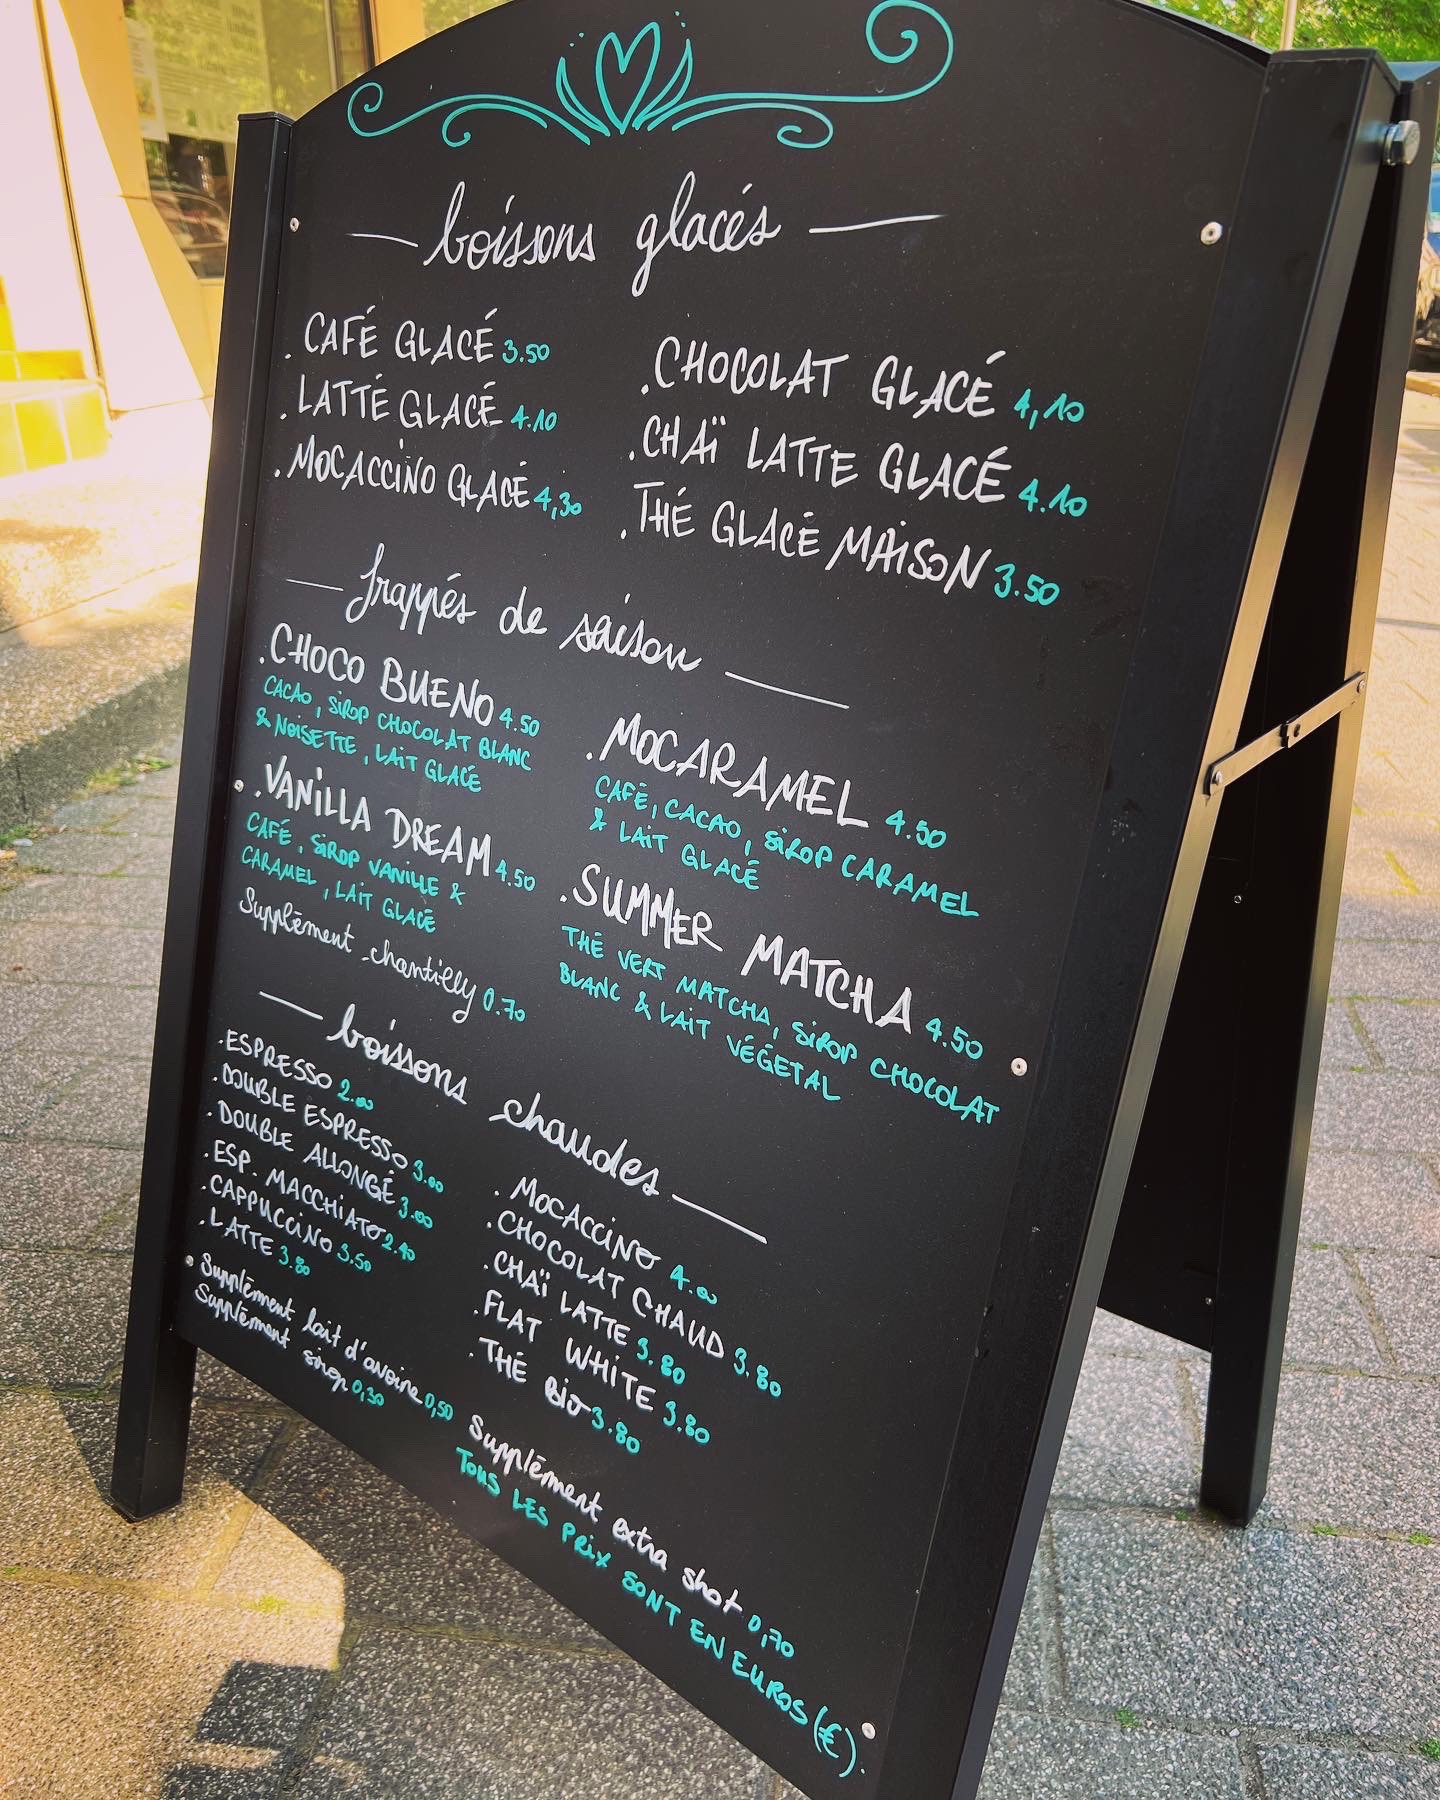 boissons glacés
. CAFÉ GLACÉ 3.50
. LATTÉ GLACÉ 4.10
. MOCACCINO GLACÉ 4,30
. CHOCOLAT GLACÉ 4,10
. CHAÏ LATTE GLACÉ 4.10
. THÉ GLACÉ MAISON 3.50
frappés de saison
. CHOCO BUENO 4.50
CACAO, SIROP CHOCOLAT BLANC
& NOISETTE, LAIT GLACÉ
. VANILLA DREAM 4.50
CAFÉ, SIROP VANILLE &
CARAMEL, LAIT GLACÉ
Supplément chantilly 0.70
. MOCARAMEL 4.50
CAFÉ, CACAO, SIROP CARAMEL
& LAIT GLACÉ
. SUMMER MATCHA 4.50
THÉ VERT MATCHA, SIROP CHOCOLAT
BLANC & LAIT VÉGÉTAL
boissons chaudes
. ESPRESSO 2.00
. DOUBLE ESPRESSO 3.00
. DOUBLE ALLONGÉ 3.00
. ESP. MACCHIATO 2.40
. CAPPUCCINO 3.50
. LATTE 3.80
Supplément lait d'avoine 0,50
Supplément sirop 0,30
. MOCACCINO 4.00
. CHOCOLAT CHAUD 3.80
. CHAÏ LATTE 3.80
. FLAT WHITE 3.80
. THÉ BIO 3.80
Supplément extra shot 0,70
TOUS LES PRIX SONT EN EUROS (€).